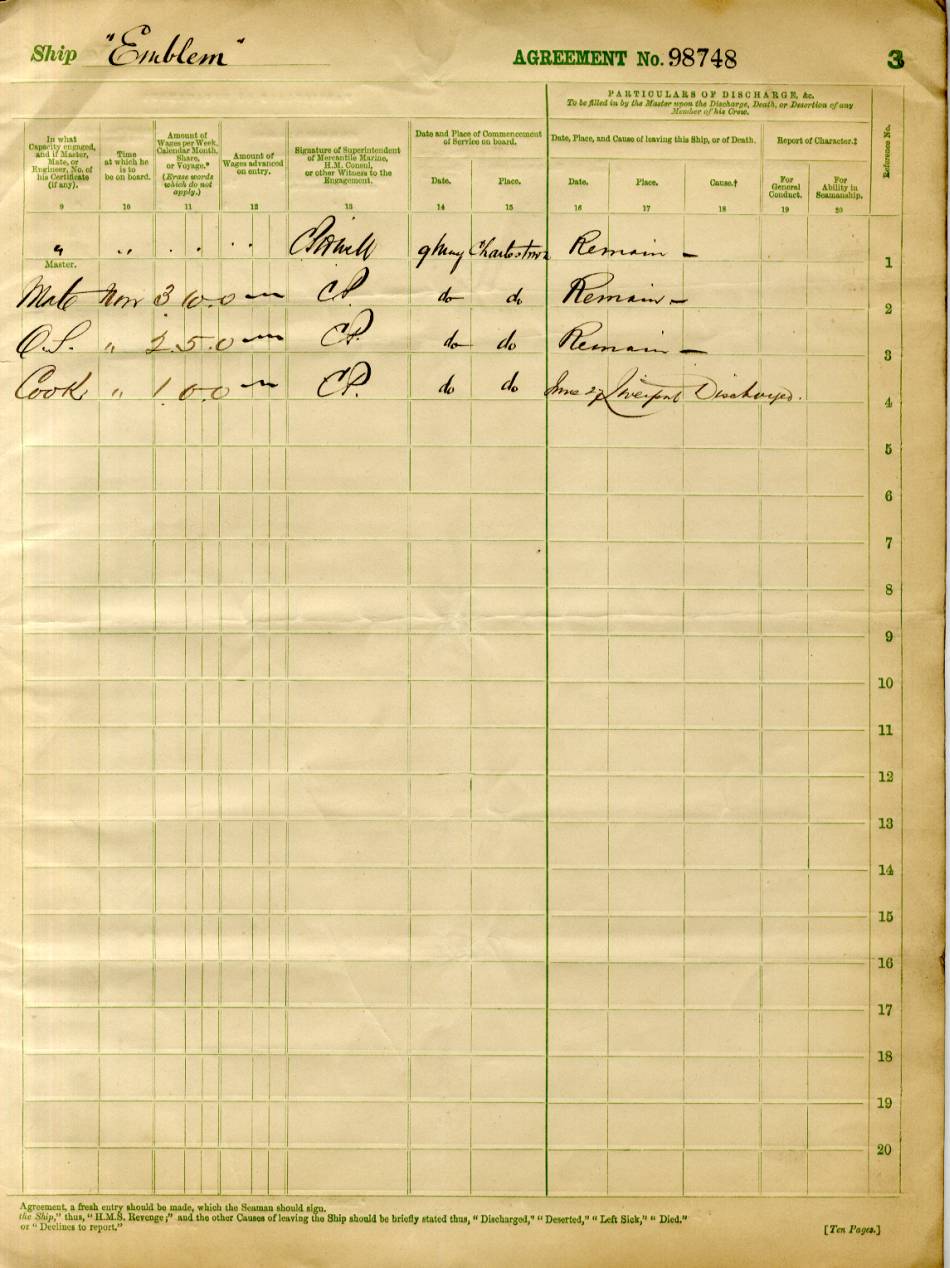 Ship "Emblem" AGREEMENT No. 98748 3
PARTICULARS OF DISCHARGE, &c.
To be filled in by the Master upon the Discharge, Death, or Desertion of any
Member of his Crew.
In what Capacity engaged, and if Master, Mate, or Engineer, No. of his Certificate (if any).
Time at which he is to be on board.
Amount of Wages per Week, Calendar Month, Share, or Voyage.* (Erase words which do not apply.)
Amount of Wages advanced on entry.
Signature of Superintendent of Mercantile Marine, H.M. Consul, or other Witness to the Engagement.
Date and Place of Commencement of Service on board.
Date. Place.
Date, Place, and Cause of leaving this Ship, or of Death.
Date. Place. Cause.†
Report of Character.‡
For General Conduct. For Ability in Seamanship.
Reference No.
9 10 11 12 13 14 15 16 17 18 19 20
" " " " 9 May Charlestown Remain – 1
Master.
Mate Now 3 10 0 – CP. do do Remain – 2
O.S. " 2 5 0 – CP. do do Remain – 3
Cook " 1 0 0 – CP. do do June 27 Liverpool Discharged. 4
5
6
7
8
9
10
11
12
13
14
15
16
17
18
19
20
Agreement, a fresh entry should be made, which the Seaman should sign.
the Ship," thus, "H.M.S. Revenge;" and the other Causes of leaving the Ship should be briefly stated thus, "Discharged," "Deserted," "Left Sick," "Died."
or "Declines to report."
[Ten Pages.]